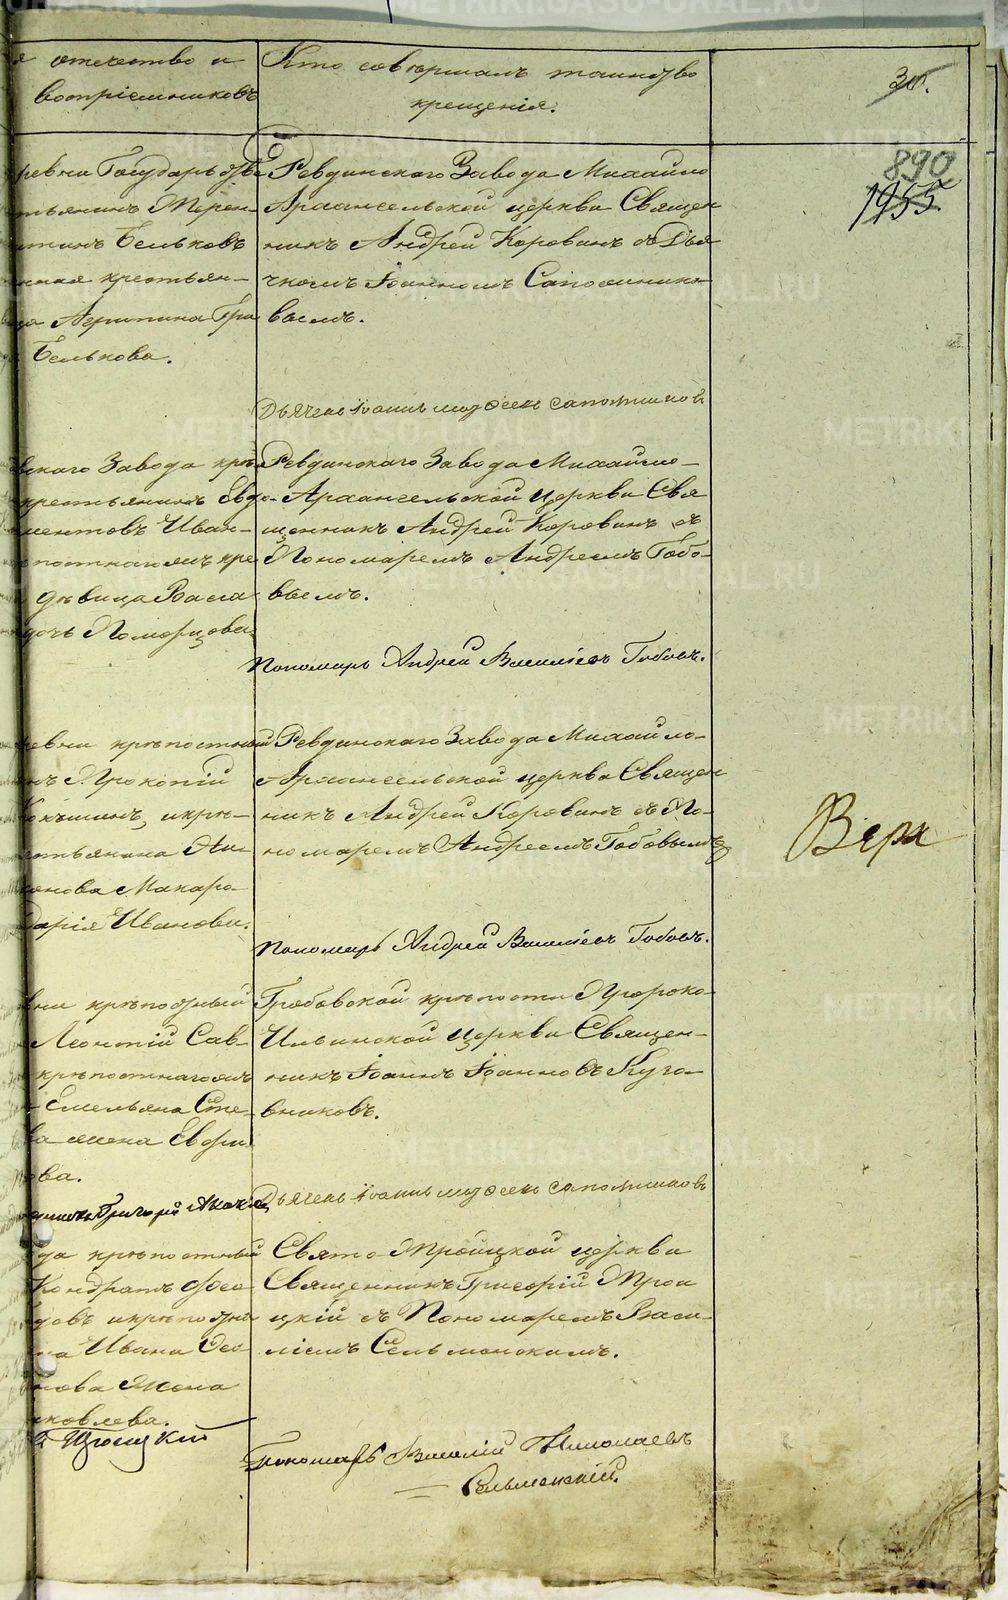 отечество и
воспріемниковъ
Кто совершалъ таинство
крещенія.
30.
890
1955
6
ревни Государств
Бельковъ
крестьян-
Агрипина Гри
Белькова.
Ревдинскаго Завода Михайло
Архангельской церкви Священ
никъ Андрей Коровинъ съ Дья
чкомъ Іоанномъ Сапожнико-
вымъ.
Дьячекъ Іоаннъ Сапожниковъ
вскаго Завода крѣп
крестьянинъ Евдо-
ментовъ Иван-
постнагожъ кре
дѣвица Васса
дочь Поморцова
Ревдинскаго Завода Михайло-
Архангельской церкви Свя
щенникъ Андрей Коровинъ съ
Пономаремъ Андреемъ Гобо-
вымъ.
Пономарь Андрей Василіевъ Гобовъ.
ревни крѣпостный
нъ Прокопій
икрѣ-
стьянина
Макаро
Дарія Иванова.
Ревдинскаго Завода Михайло-
Архангельской церкви Священ
никъ Андрей Коровинъ съ По-
номаремъ Андреемъ Гобовымъ
Пономарь Андрей Василіевъ Гобовъ.
Верх
вни крѣпостный
Леонтій Сав-
крѣпостнагожъ
Емельяна Сте-
ва жена Евфи
ова.
Григорій
Гробовской крѣпости Пророко-
Ильинской церкви Священ-
никъ Іоаннъ Іоанновъ
вниковъ.
Дьячекъ Іоаннъ Сапожниковъ
да крѣпостный
Кондратъ Фео
довъ икрѣпостна
на Ивана
нова жена
Яковлева.
Троицкій
Свято Троицкой церкви
Священникъ Григорій Трои
цкій съ Пономаремъ Васи-
ліемъ Сельменскимъ.
Пономарь Василій Николаевъ
Сельменскій.
METRIKI.GASO-URAL.RU